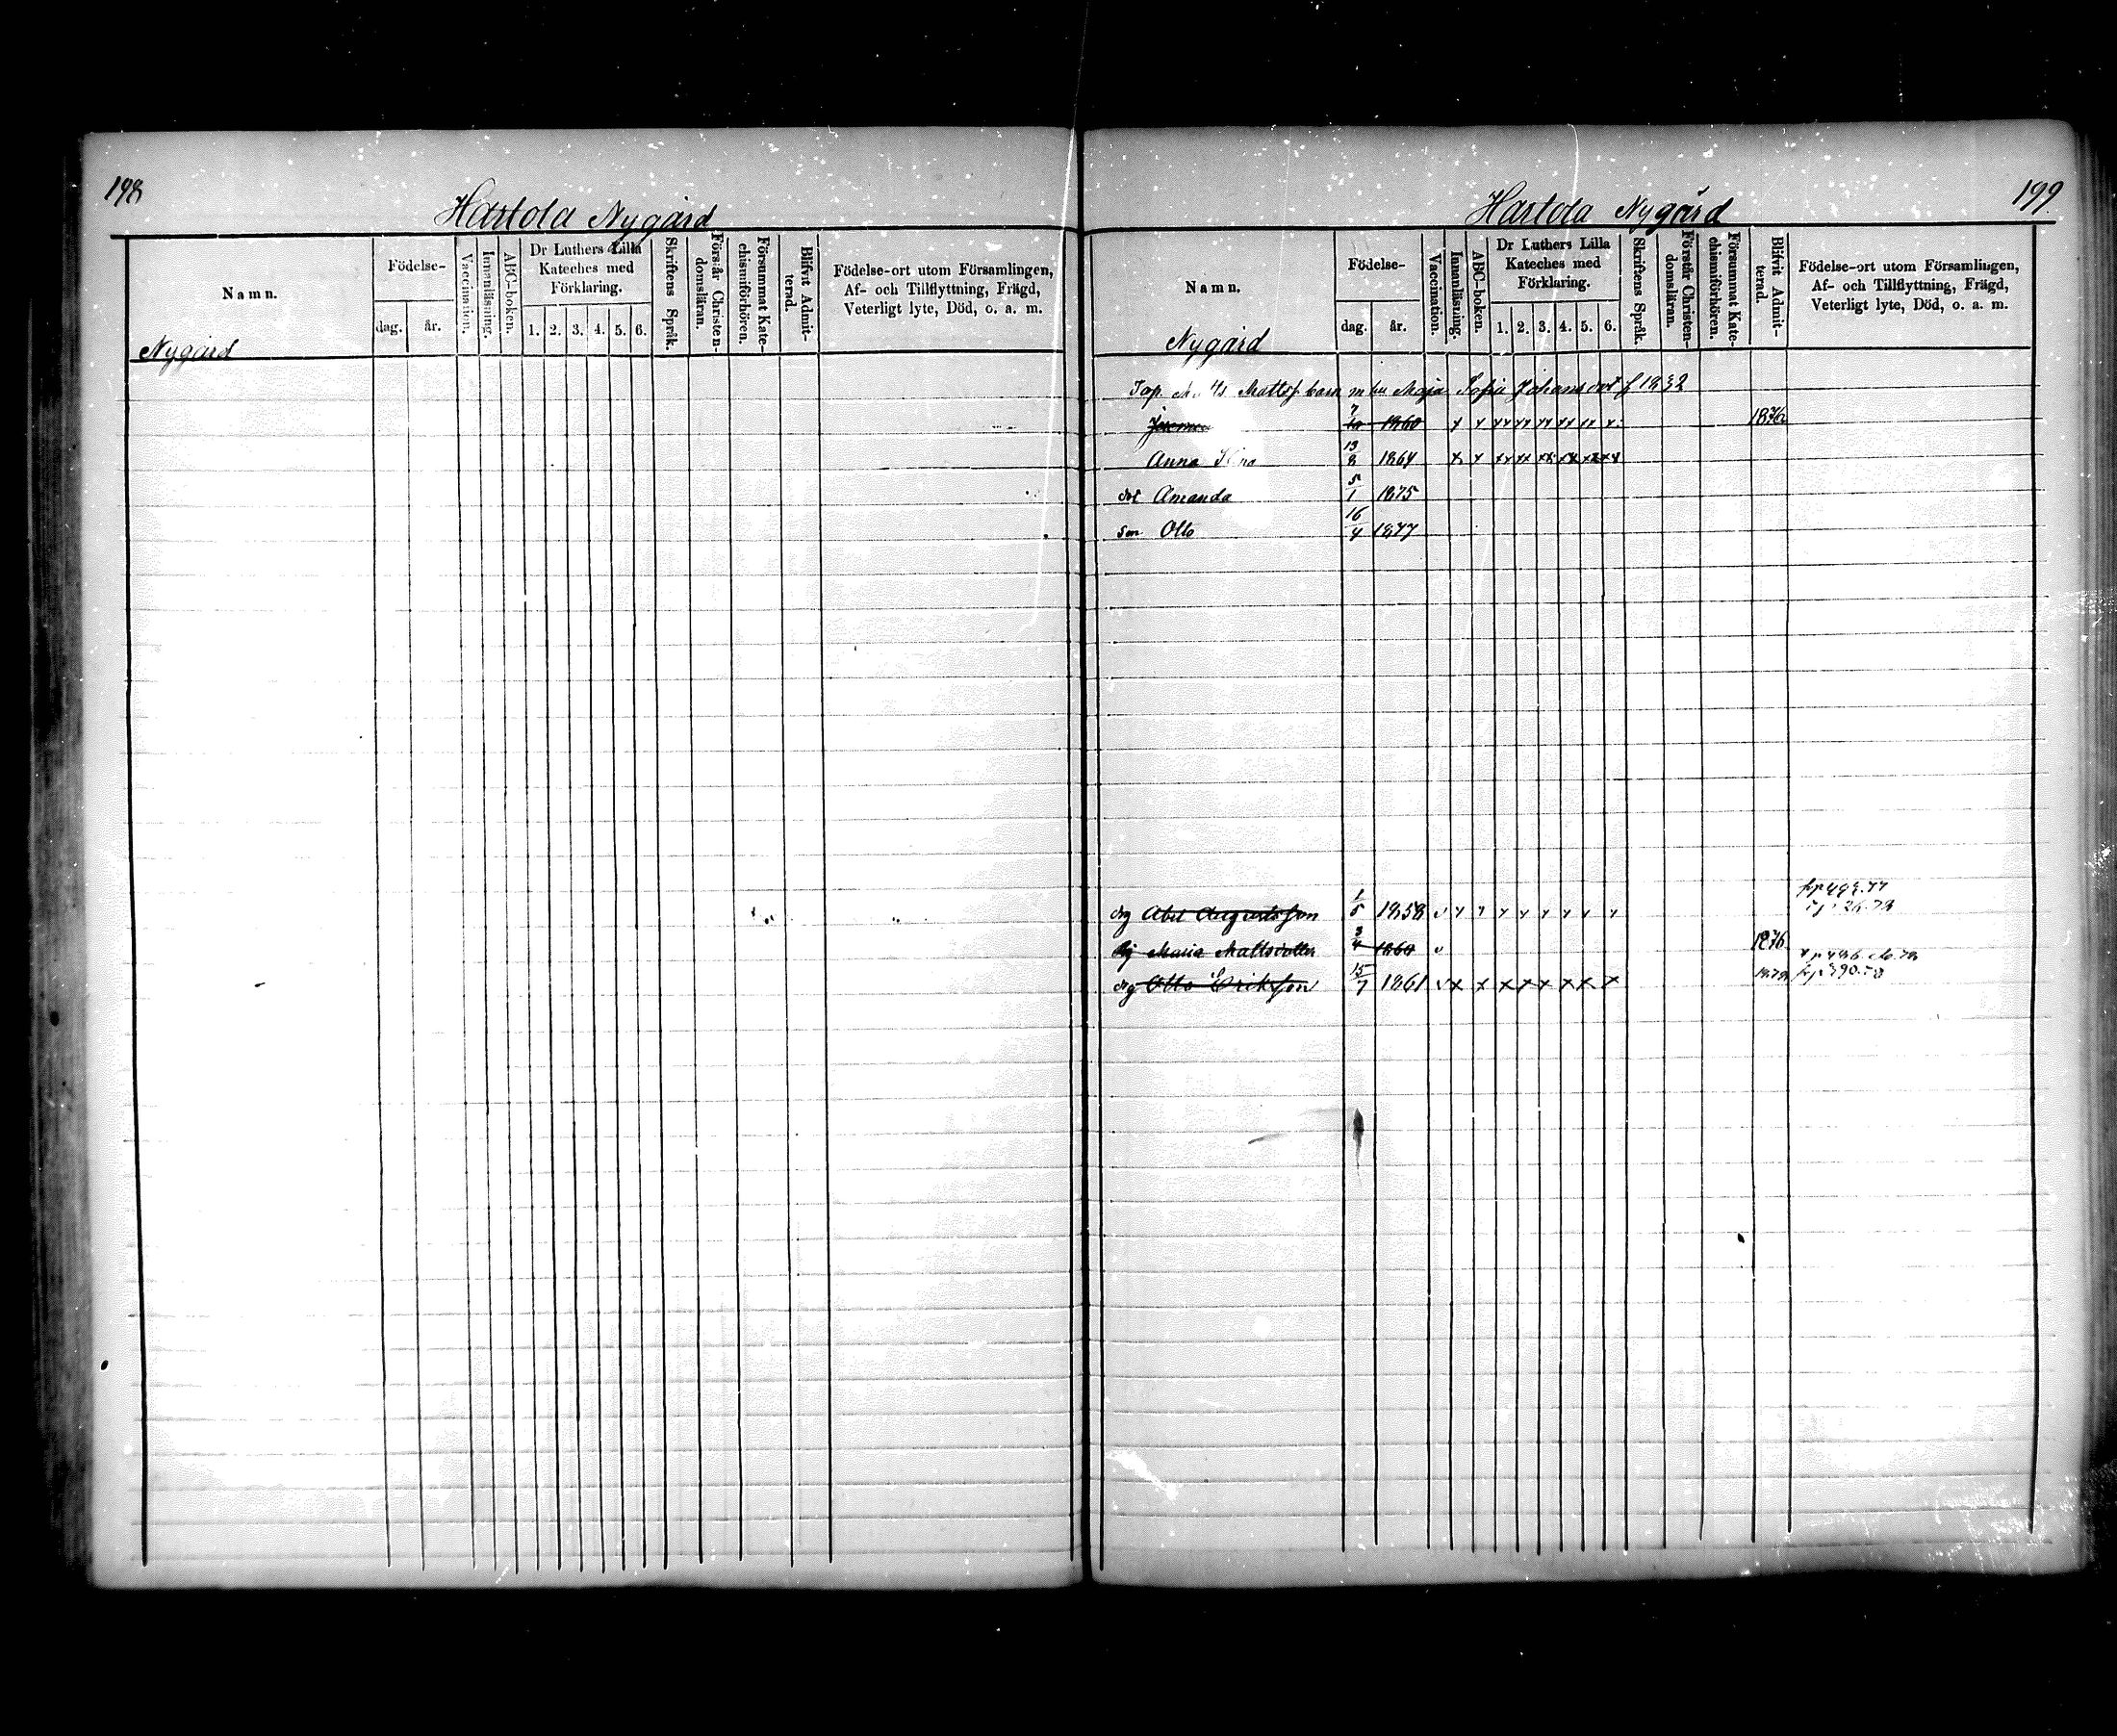 198
Hartola Nygård
Namn.
Födelse-
dag.
år.
Vaccination.
Innanläsning.
ABC-boken.
Dr Luthers Lilla
Kateches med
Förklaring.
1. 2. 3. 4. 5. 6.
Skriftens Språk.
Förstår Christen-
domsläran.
Försummat Kate-
chismiförhören.
Blifvit Admit-
terad.
Födelse-ort utom Församlingen,
Af- och Tillflyttning, Frägd,
Veterligt lyte, Död, o. a. m.
Nygård
199.
Hartola Nygård
Namn.
Födelse-
dag.
år.
Vaccination.
Innanläsning.
ABC-boken.
Dr Luthers Lilla
Kateches med
Förklaring.
1. 2. 3. 4. 5. 6.
Skriftens Språk.
Förstår Christen-
domsläran.
Försummat Kate-
chismiförhören.
Blifvit Admit-
terad.
Födelse-ort utom Församlingen,
Af- och Tillflyttning, Frägd,
Veterligt lyte, Död, o. a. m.
Nygård
Mattss barn m hu Maja Sofia Johansdot f 1832
7/10 1860 x x xx xx xx xx xx x 1876
Anna 13/8 1864 x x xx xx xx xx xx xx
dot Amanda 5/1 1875
son Otto 16/4 1877
drg Abel Augustsson 1/5 1858 v x x x x x x x x
Maria Mattsdotter 3/4 1860 v 1876
drg Otto Eriksson 15/7 1861 v x x x x x x x x 1878